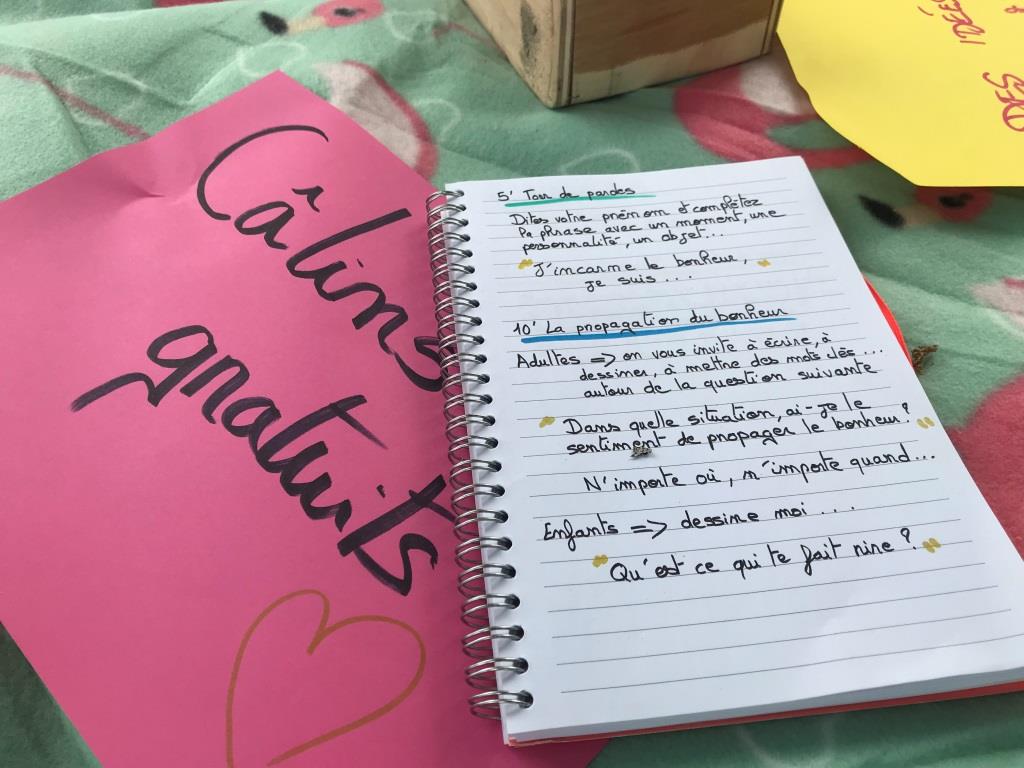 Câlins
gratuits
5' Tour de paroles
Dites votre prénom et complétez
la phrase avec un moment, une
personnalité, un objet...
" J'incarne le bonheur, "
je suis ...
10' La propagation du bonheur
Adultes => on vous invite à écrire, à
dessiner, à mettre des mots clés ...
autour de la question suivante
" Dans quelle situation, ai-je le
sentiment de propager le bonheur ? "
N'importe où, n'importe quand...
Enfants => dessine moi ...
" Qu'est ce qui te fait rire ? "
DES
IDÉES